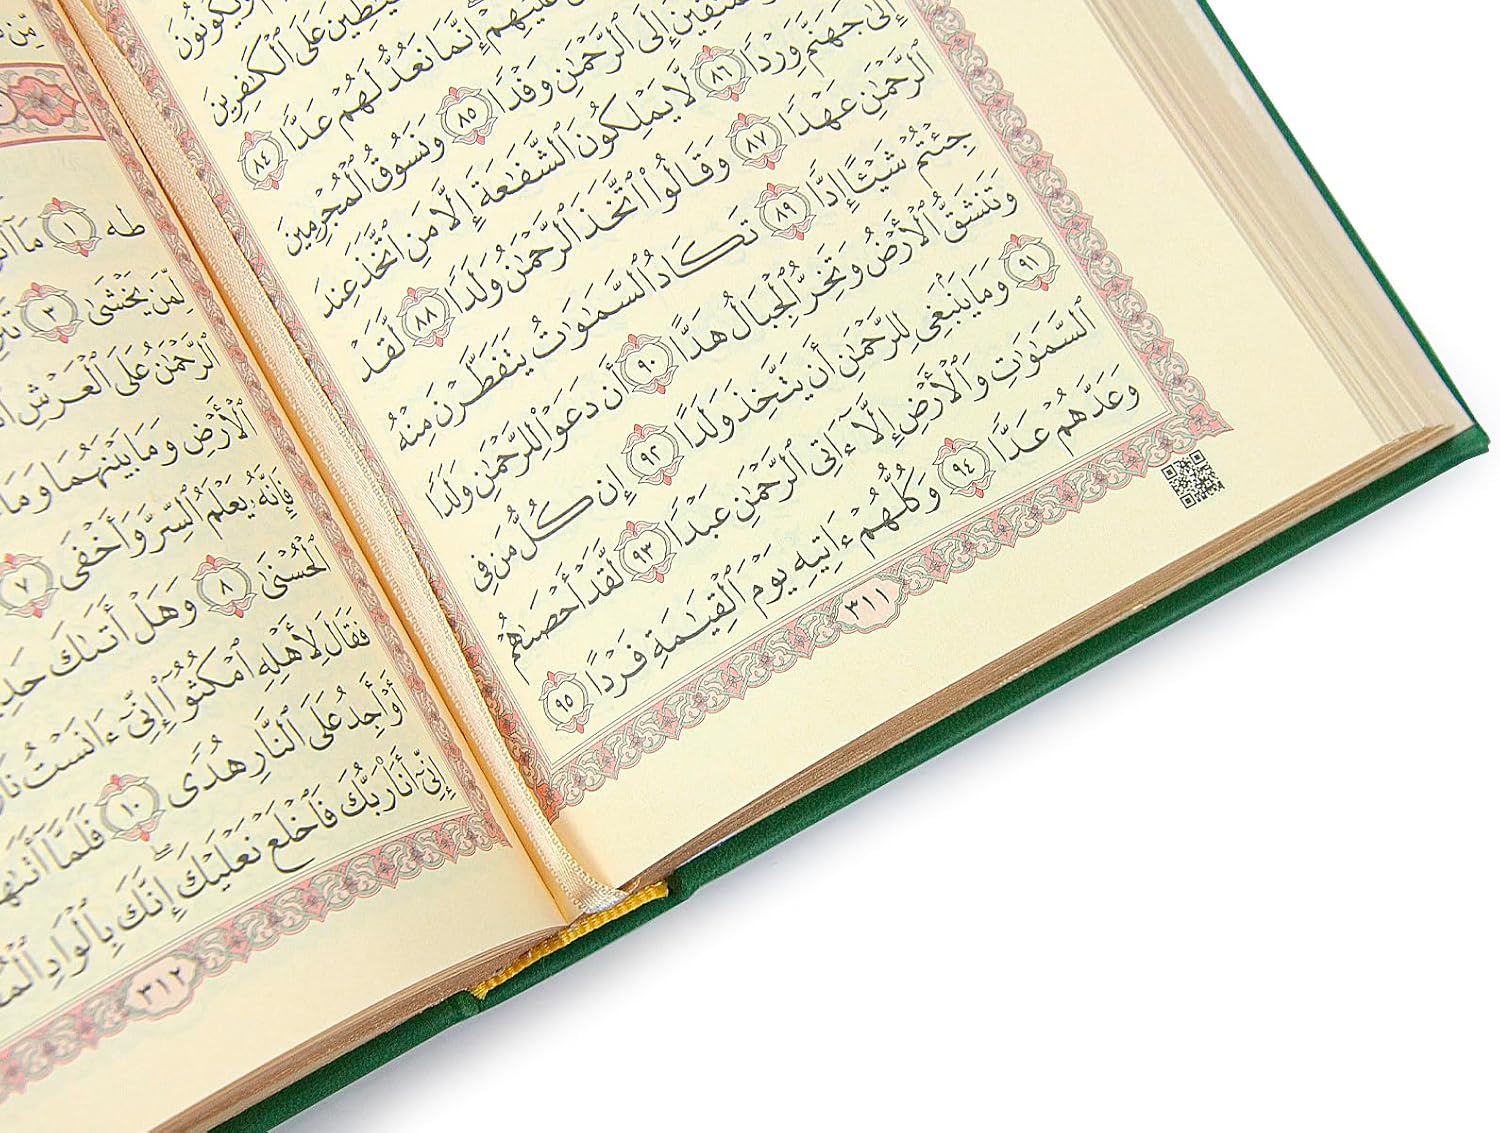 وَيَكُونُونَ
عَلَى ٱلْكَٰفِرِينَ
عَلَيْهِمْ إِنَّمَا نَعُدُّ لَهُمْ عَدًّا ٨٤
إِلَى ٱلرَّحْمَٰنِ وَفْدًا ٨٥ وَنَسُوقُ ٱلْمُجْرِمِينَ
إِلَىٰ جَهَنَّمَ وِرْدًا ٨٦ لَّا يَمْلِكُونَ ٱلشَّفَٰعَةَ إِلَّا مَنِ ٱتَّخَذَ عِندَ
ٱلرَّحْمَٰنِ عَهْدًا ٨٧ وَقَالُوا۟ ٱتَّخَذَ ٱلرَّحْمَٰنُ وَلَدًا ٨٨ لَّقَدْ
جِئْتُمْ شَيْـًٔا إِدًّا ٨٩ تَكَادُ ٱلسَّمَٰوَٰتُ يَتَفَطَّرْنَ مِنْهُ
وَتَنشَقُّ ٱلْأَرْضُ وَتَخِرُّ ٱلْجِبَالُ هَدًّا ٩٠ أَن دَعَوْا۟ لِلرَّحْمَٰنِ وَلَدًا
٩١ وَمَا يَنۢبَغِى لِلرَّحْمَٰنِ أَن يَتَّخِذَ وَلَدًا ٩٢ إِن كُلُّ مَن فِى
ٱلسَّمَٰوَٰتِ وَٱلْأَرْضِ إِلَّآ ءَاتِى ٱلرَّحْمَٰنِ عَبْدًا ٩٣ لَّقَدْ أَحْصَىٰهُمْ
وَعَدَّهُمْ عَدًّا ٩٤ وَكُلُّهُمْ ءَاتِيهِ يَوْمَ ٱلْقِيَٰمَةِ فَرْدًا ٩٥
٣١١
طه ١ مَآ
لِّمَن يَخْشَىٰ ٣
ٱلرَّحْمَٰنُ عَلَى ٱلْعَرْشِ
ٱلْأَرْضِ وَمَا بَيْنَهُمَا وَمَا
فَإِنَّهُۥ يَعْلَمُ ٱلسِّرَّ وَأَخْفَى ٧
ٱلْحُسْنَىٰ ٨ وَهَلْ أَتَىٰكَ
فَقَالَ لِأَهْلِهِ ٱمْكُثُوٓا۟ إِنِّىٓ ءَانَسْتُ
أَوْ أَجِدُ عَلَى ٱلنَّارِ هُدًى ١٠ فَلَمَّآ أَتَىٰهَا
إِنِّىٓ أَنَا۠ رَبُّكَ فَٱخْلَعْ نَعْلَيْكَ إِنَّكَ بِٱلْوَادِ
٣١٢